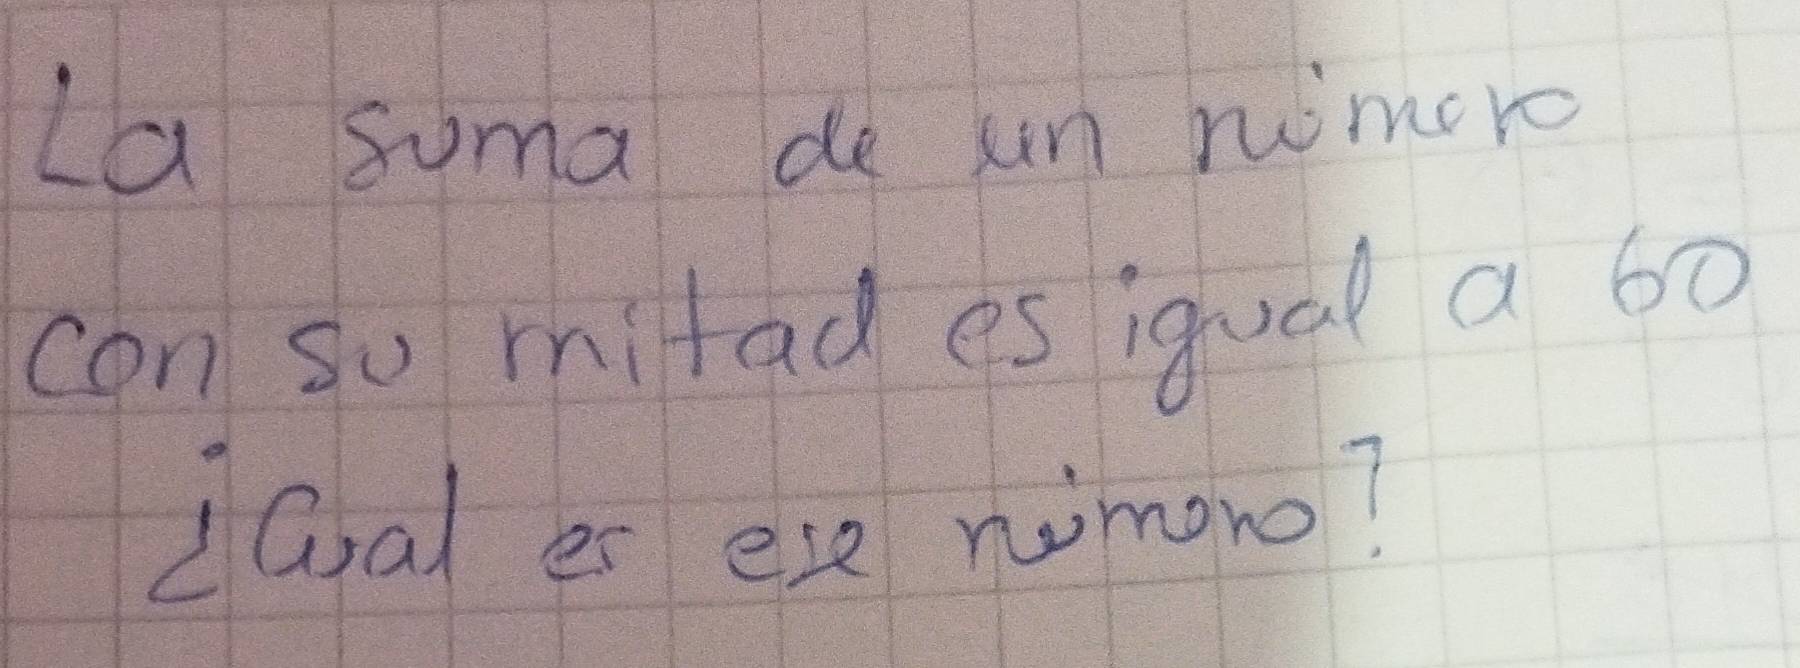 La suma de un número
con su mitad es igual a 60
¿Cual es ese número?